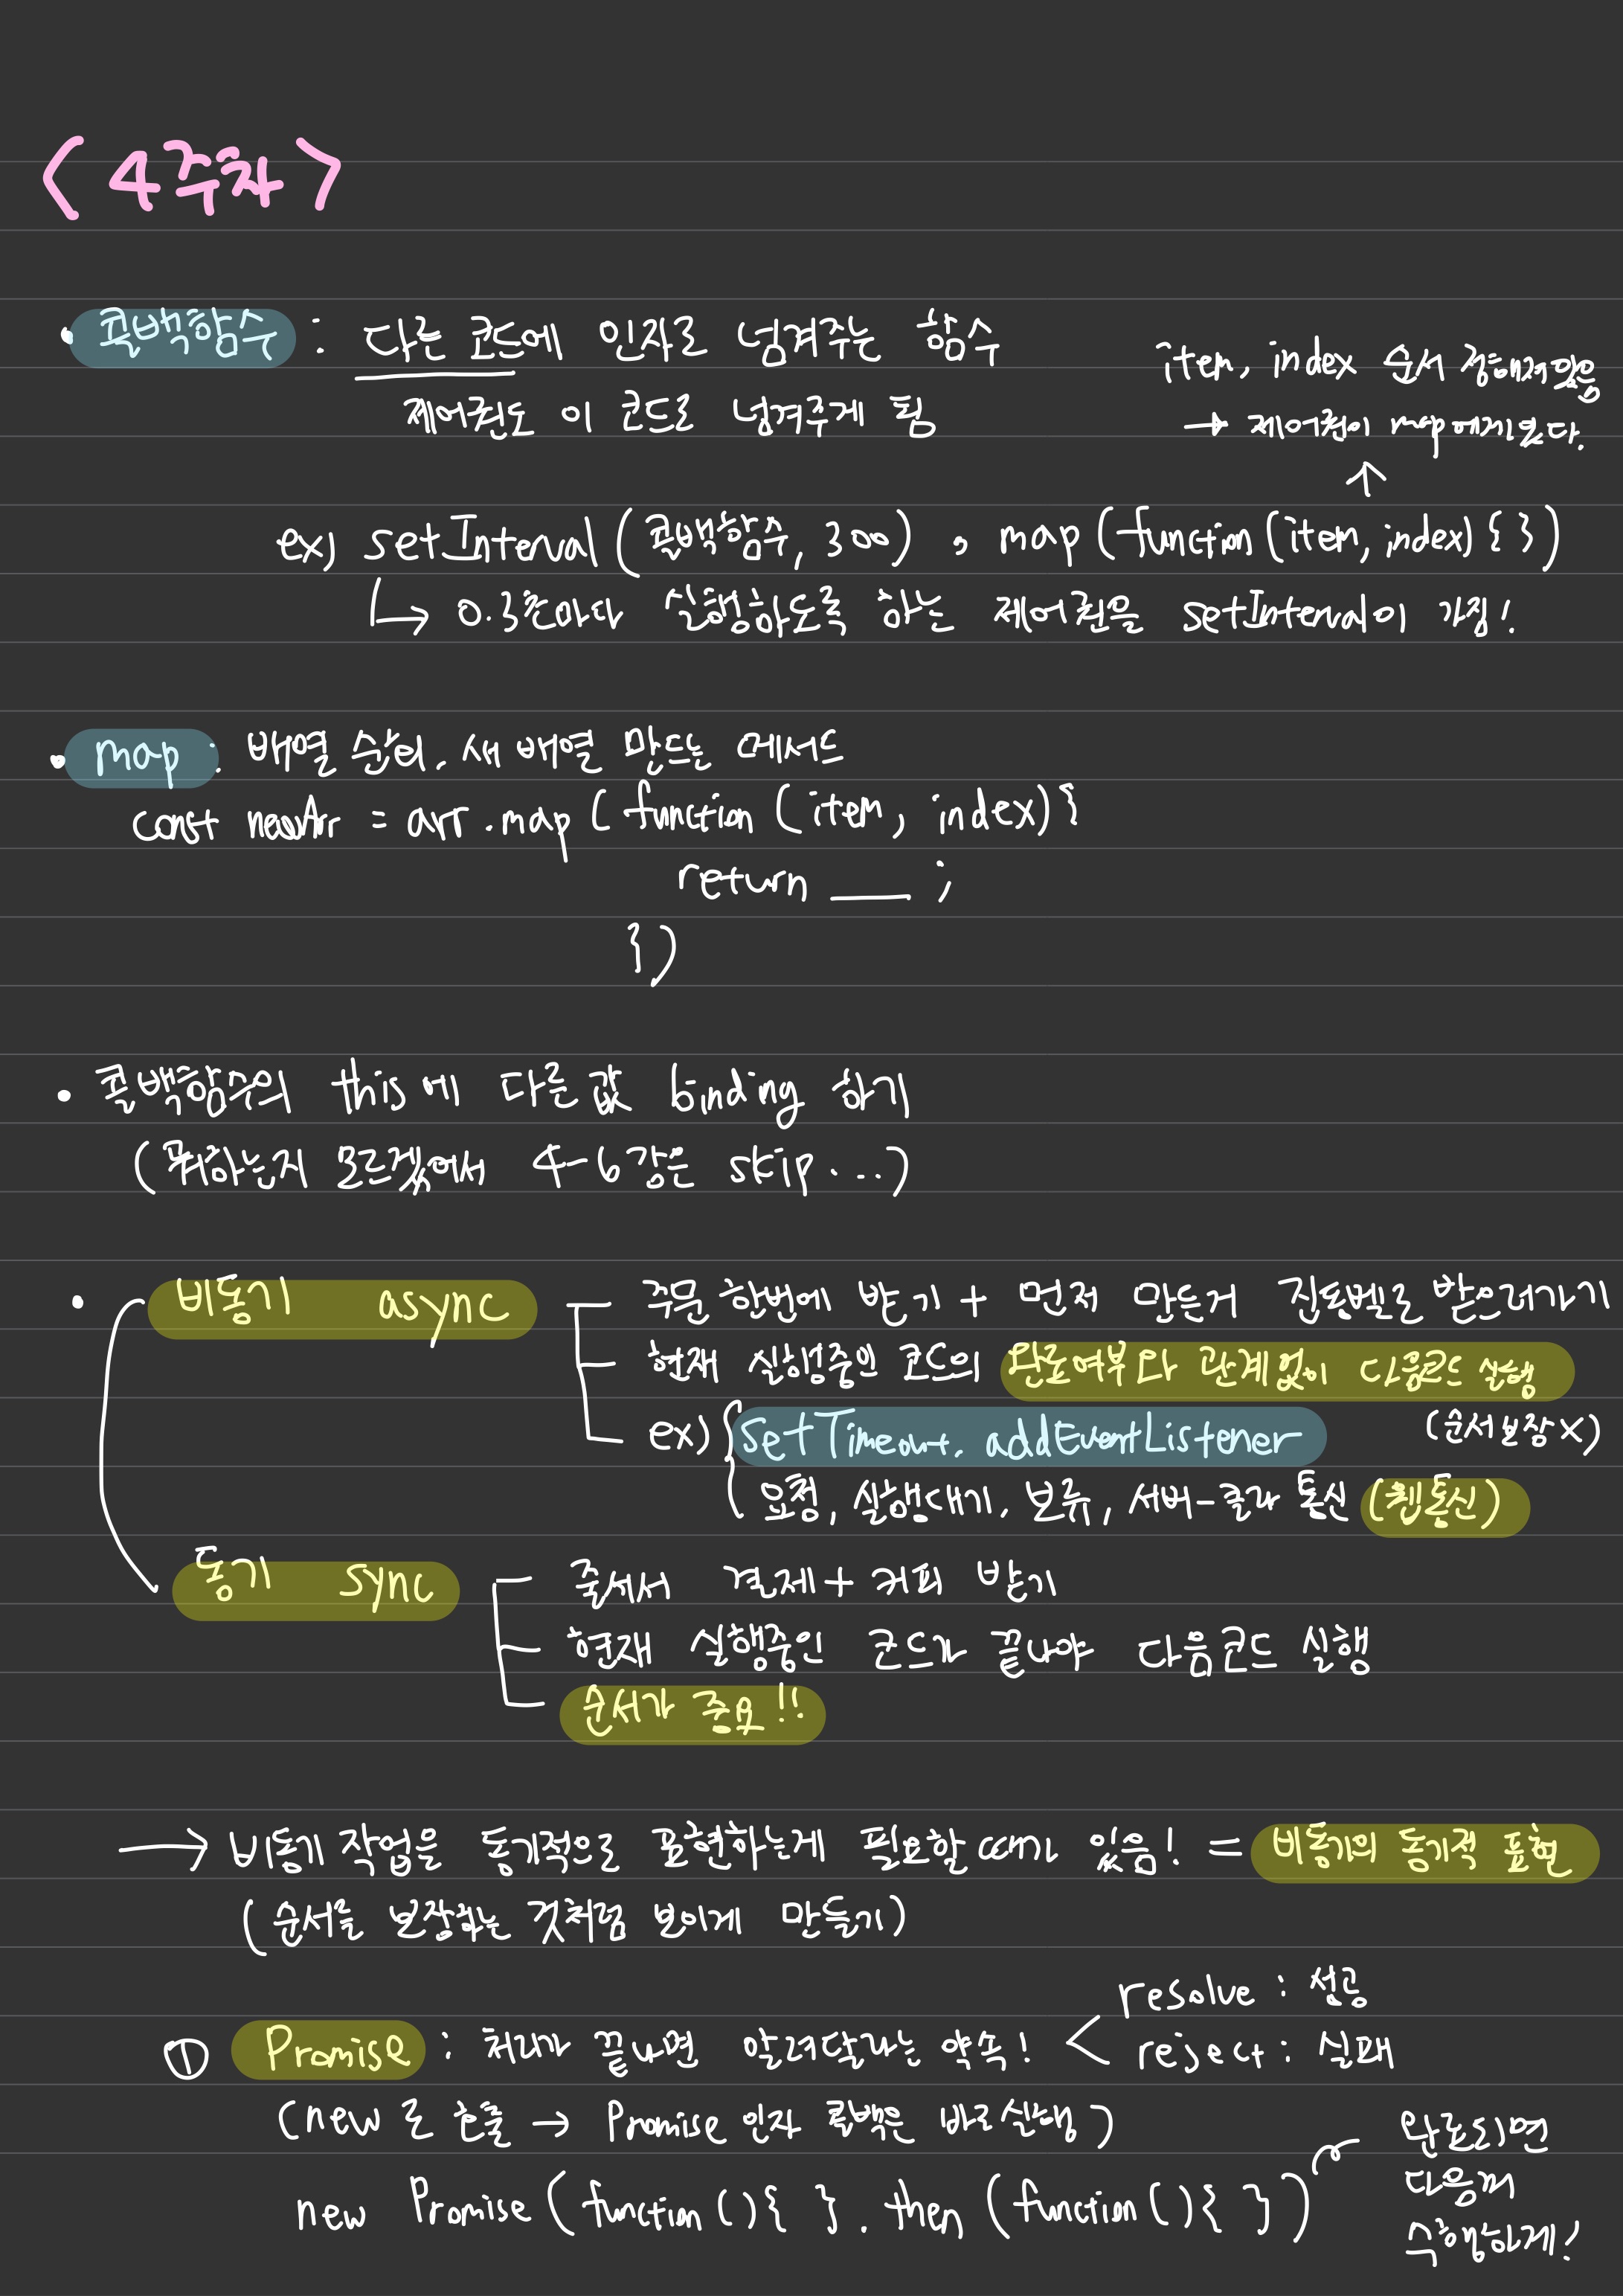 <4주차>
• 콜백함수 : 다른 코드에 인자로 넘겨주는 함수
제어권도 이 코드로 넘겨주게 됨
item, index 순서 정해져있음
→ 제어권이 map에게 있다.
↑
ex) setInterval(콜백함수, 300) , map(function(item, index){ })
↳ 0.3초마다 실행하도록 하는 제어권을 setInterval이 가짐!
• map : 배열 순회. 새 배열 만드는 메서드
const newArr = arr.map(function (item, index){
return ____ ;
})
• 콜백함수의 this에 다른 값 binding 하기
(뭐하는지 모르겠어서 4-6강은 skip....)
• 비동기 async
주문 한번에 받기 + 먼저 만든거 진동벨로 받으러가기
현재 실행중인 코드의 완료여부와 관계없이 다음코드 실행
(순서보장x)
ex) setTimeout. addEventListener
요청, 실행대기. 보류, 서버-클라 통신 (웹통신)
동기 sync
줄서서 결제+커피 받기
현재 실행중인 코드가 끝나야 다음코드 실행
순서가 중요!!
→ 비동기 작업을 동기적으로 표현하는게 필요할 때가 있음! = 비동기의 동기적 표현
(순서를 보장하는 것처럼 보이게 만들기)
① Promise : 처리가 끝나면 알려달라는 약속!
resolve : 성공
reject : 실패
(new 로 호출 → Promise 인자 콜백은 바로실행)
new Promise(function(){ }.then(function(){ }))
완료되면
다음꺼
수행하게!